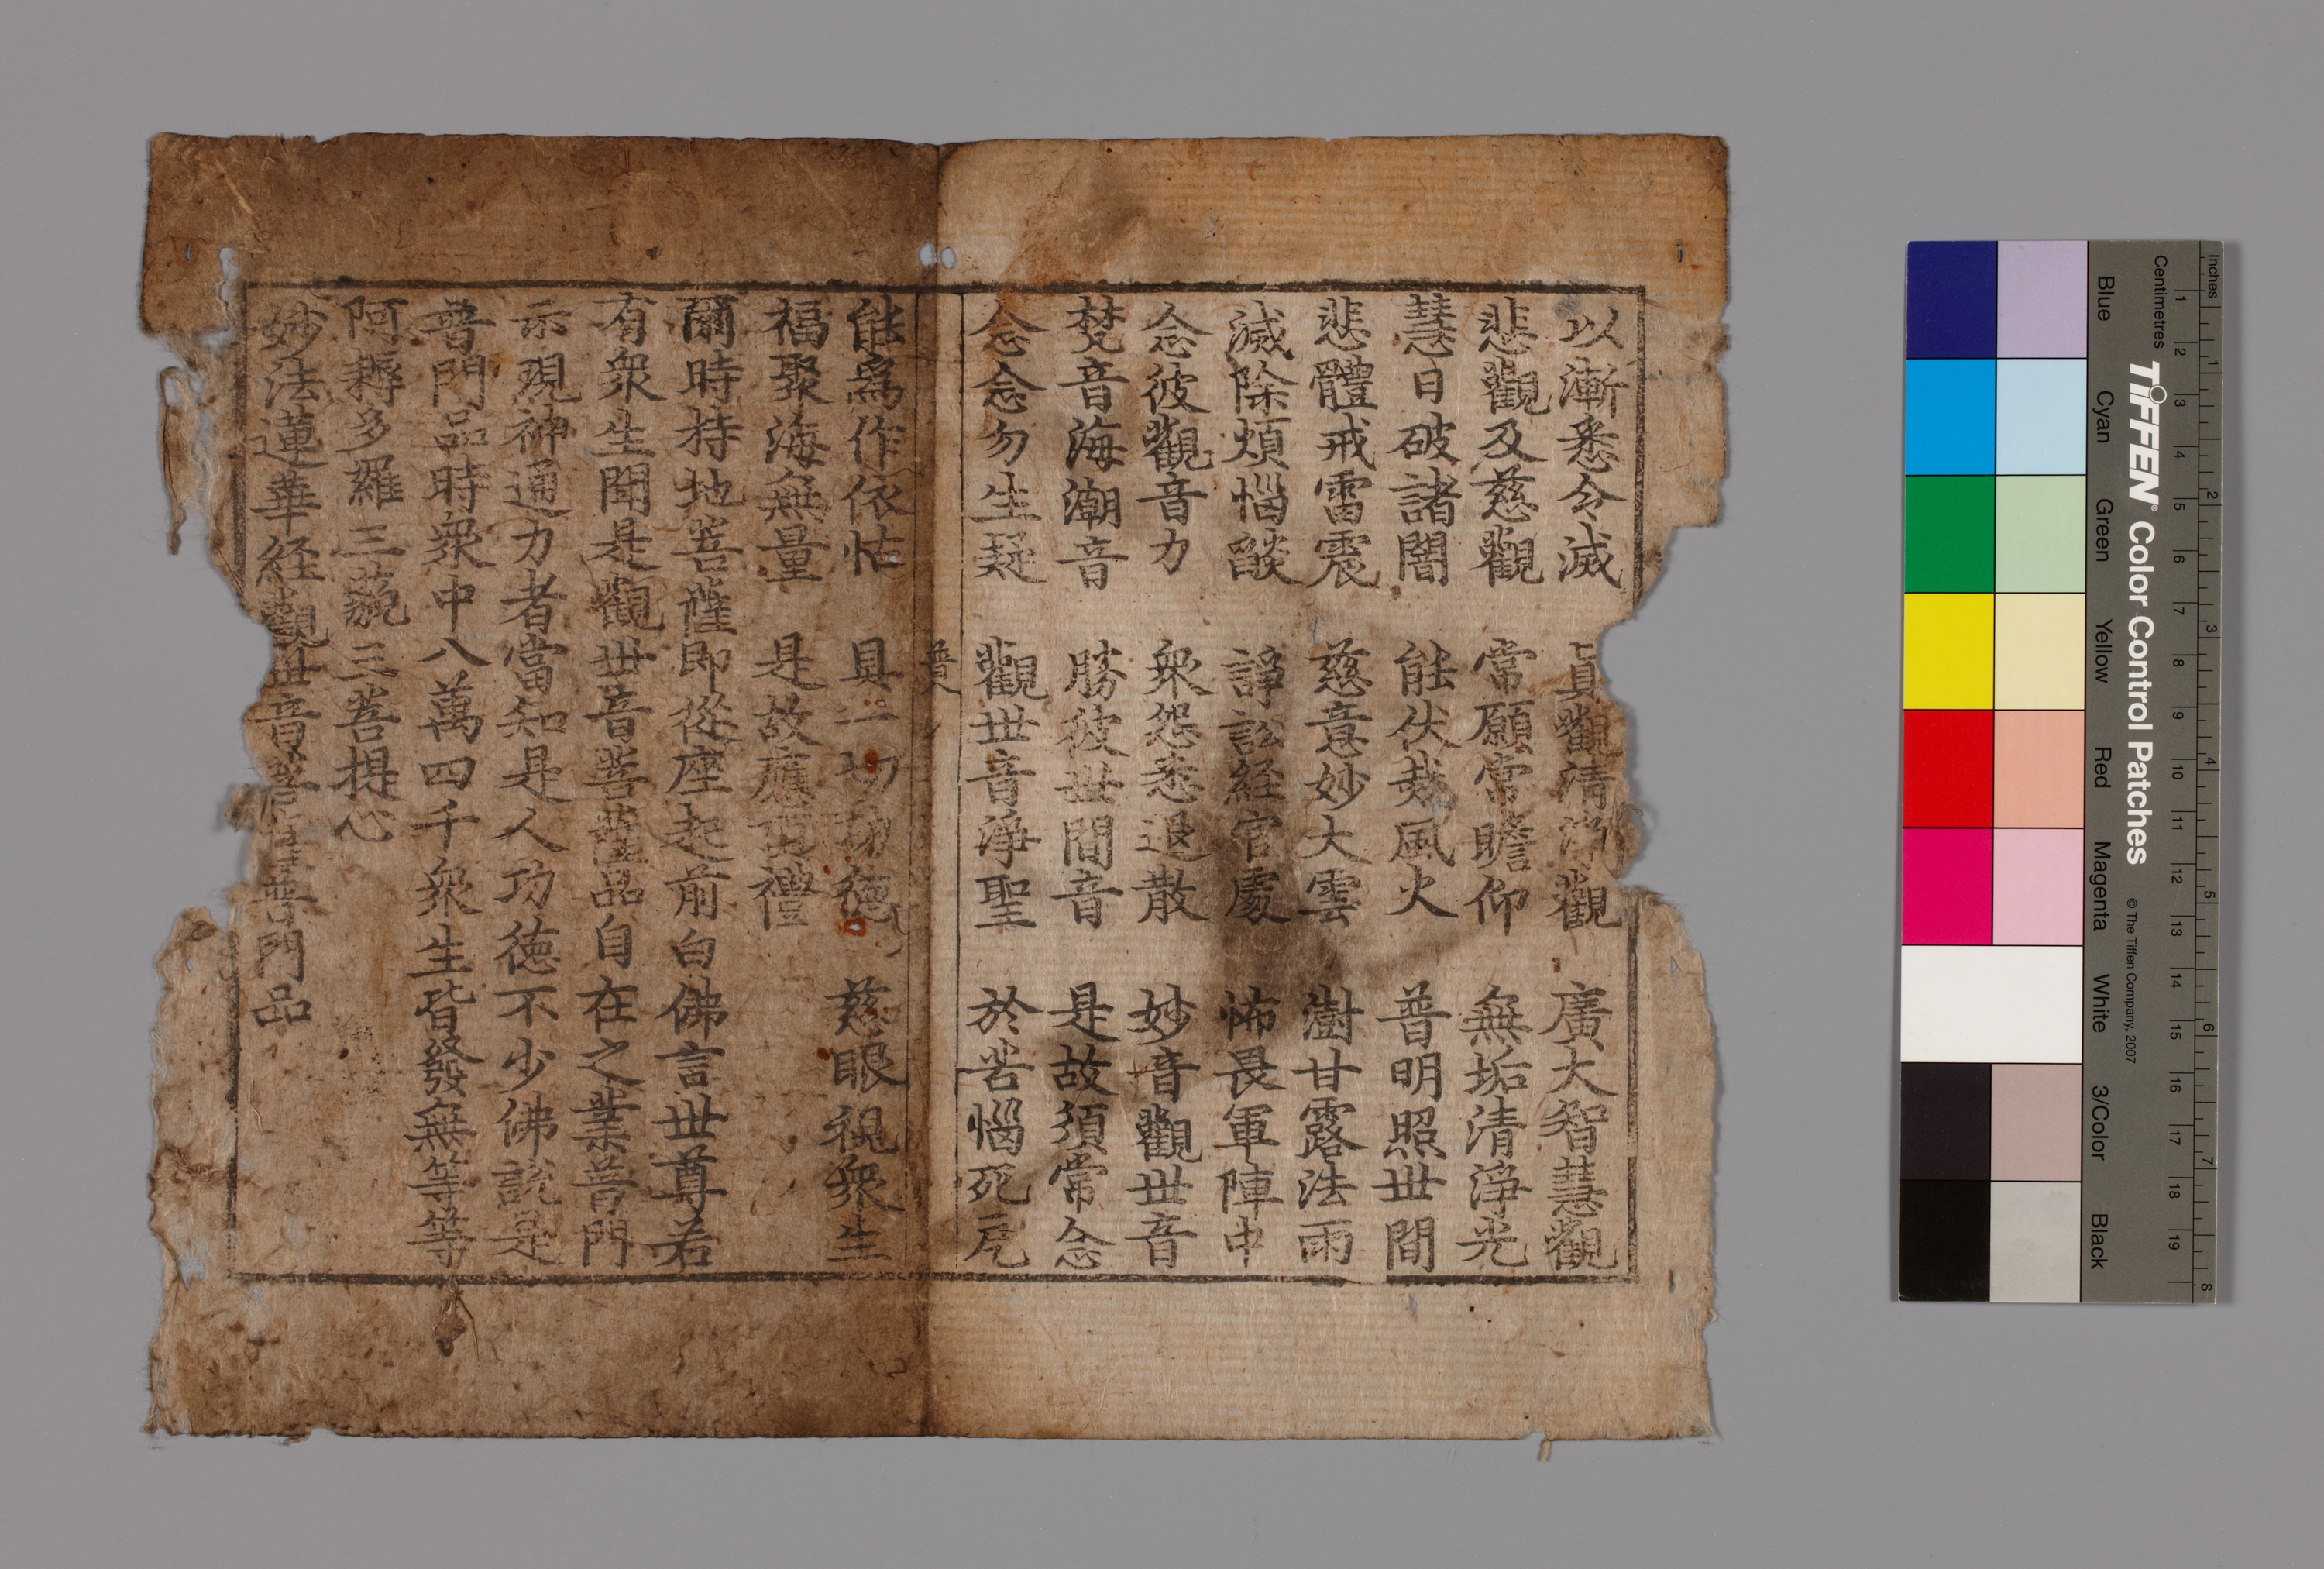 以漸悉令滅 真觀清淨觀 廣大智慧觀
悲觀及慈觀 常願常瞻仰 無垢清淨光
慧日破諸闇 能伏烖風火 普明照世間
悲體戒雷震 慈意妙大雲 澍甘露法雨
滅除煩惱燄 諍訟経官處 怖畏軍陣中
念彼觀音力 衆怨悉退散 妙音觀世音
梵音海潮音 勝彼世間音 是故須常念
念念勿生疑 觀世音淨聖 於苦惱死厄
普
能爲作依怙 具一切功德 慈眼視衆生
福聚海無量 是故應頂禮
爾時持地菩薩即從座起前白佛言世尊若
有衆生聞是觀世音菩薩品自在之業普門
示現神通力者當知是人功德不少佛說是
普門品時衆中八萬四千衆生皆發無等等
阿耨多羅三藐三菩提心
妙法蓮華経觀世音菩薩普門品
Inches
Centimetres
1 2 3 4 5 6 7 8 9 10 11 12 13 14 15 16 17 18 19
1 2 3 4 5 6 7 8
TIFFEN® Color Control Patches © The Tiffen Company, 2007
Blue Cyan Green Yellow Red Magenta White 3/Color Black